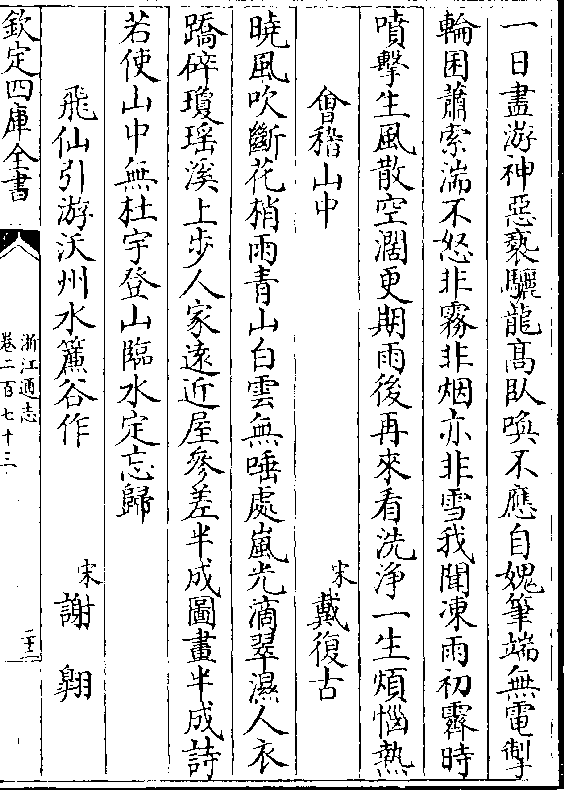 一日盡游神惡褻驪龍髙臥喚不應自媿筆端無電掣
輪囷蕭索湍不怒非霧非烟亦非雪我聞凍雨初霽時
噴擊生風散空濶更期雨後再來看洗淨一生煩惱熱
會稽山中
宋戴復古
曉風吹斷花梢雨青山白雲無唾處嵐光滴翠濕人衣
蹻碎瓊瑶溪上步人家遠近屋參差半成圖畫半成詩
若使山中無杜宇登山臨水定忘歸
飛仙引游沃州水簾谷作
宋謝翺
欽定四庫全書
浙江通志
卷二百七十三
二十三